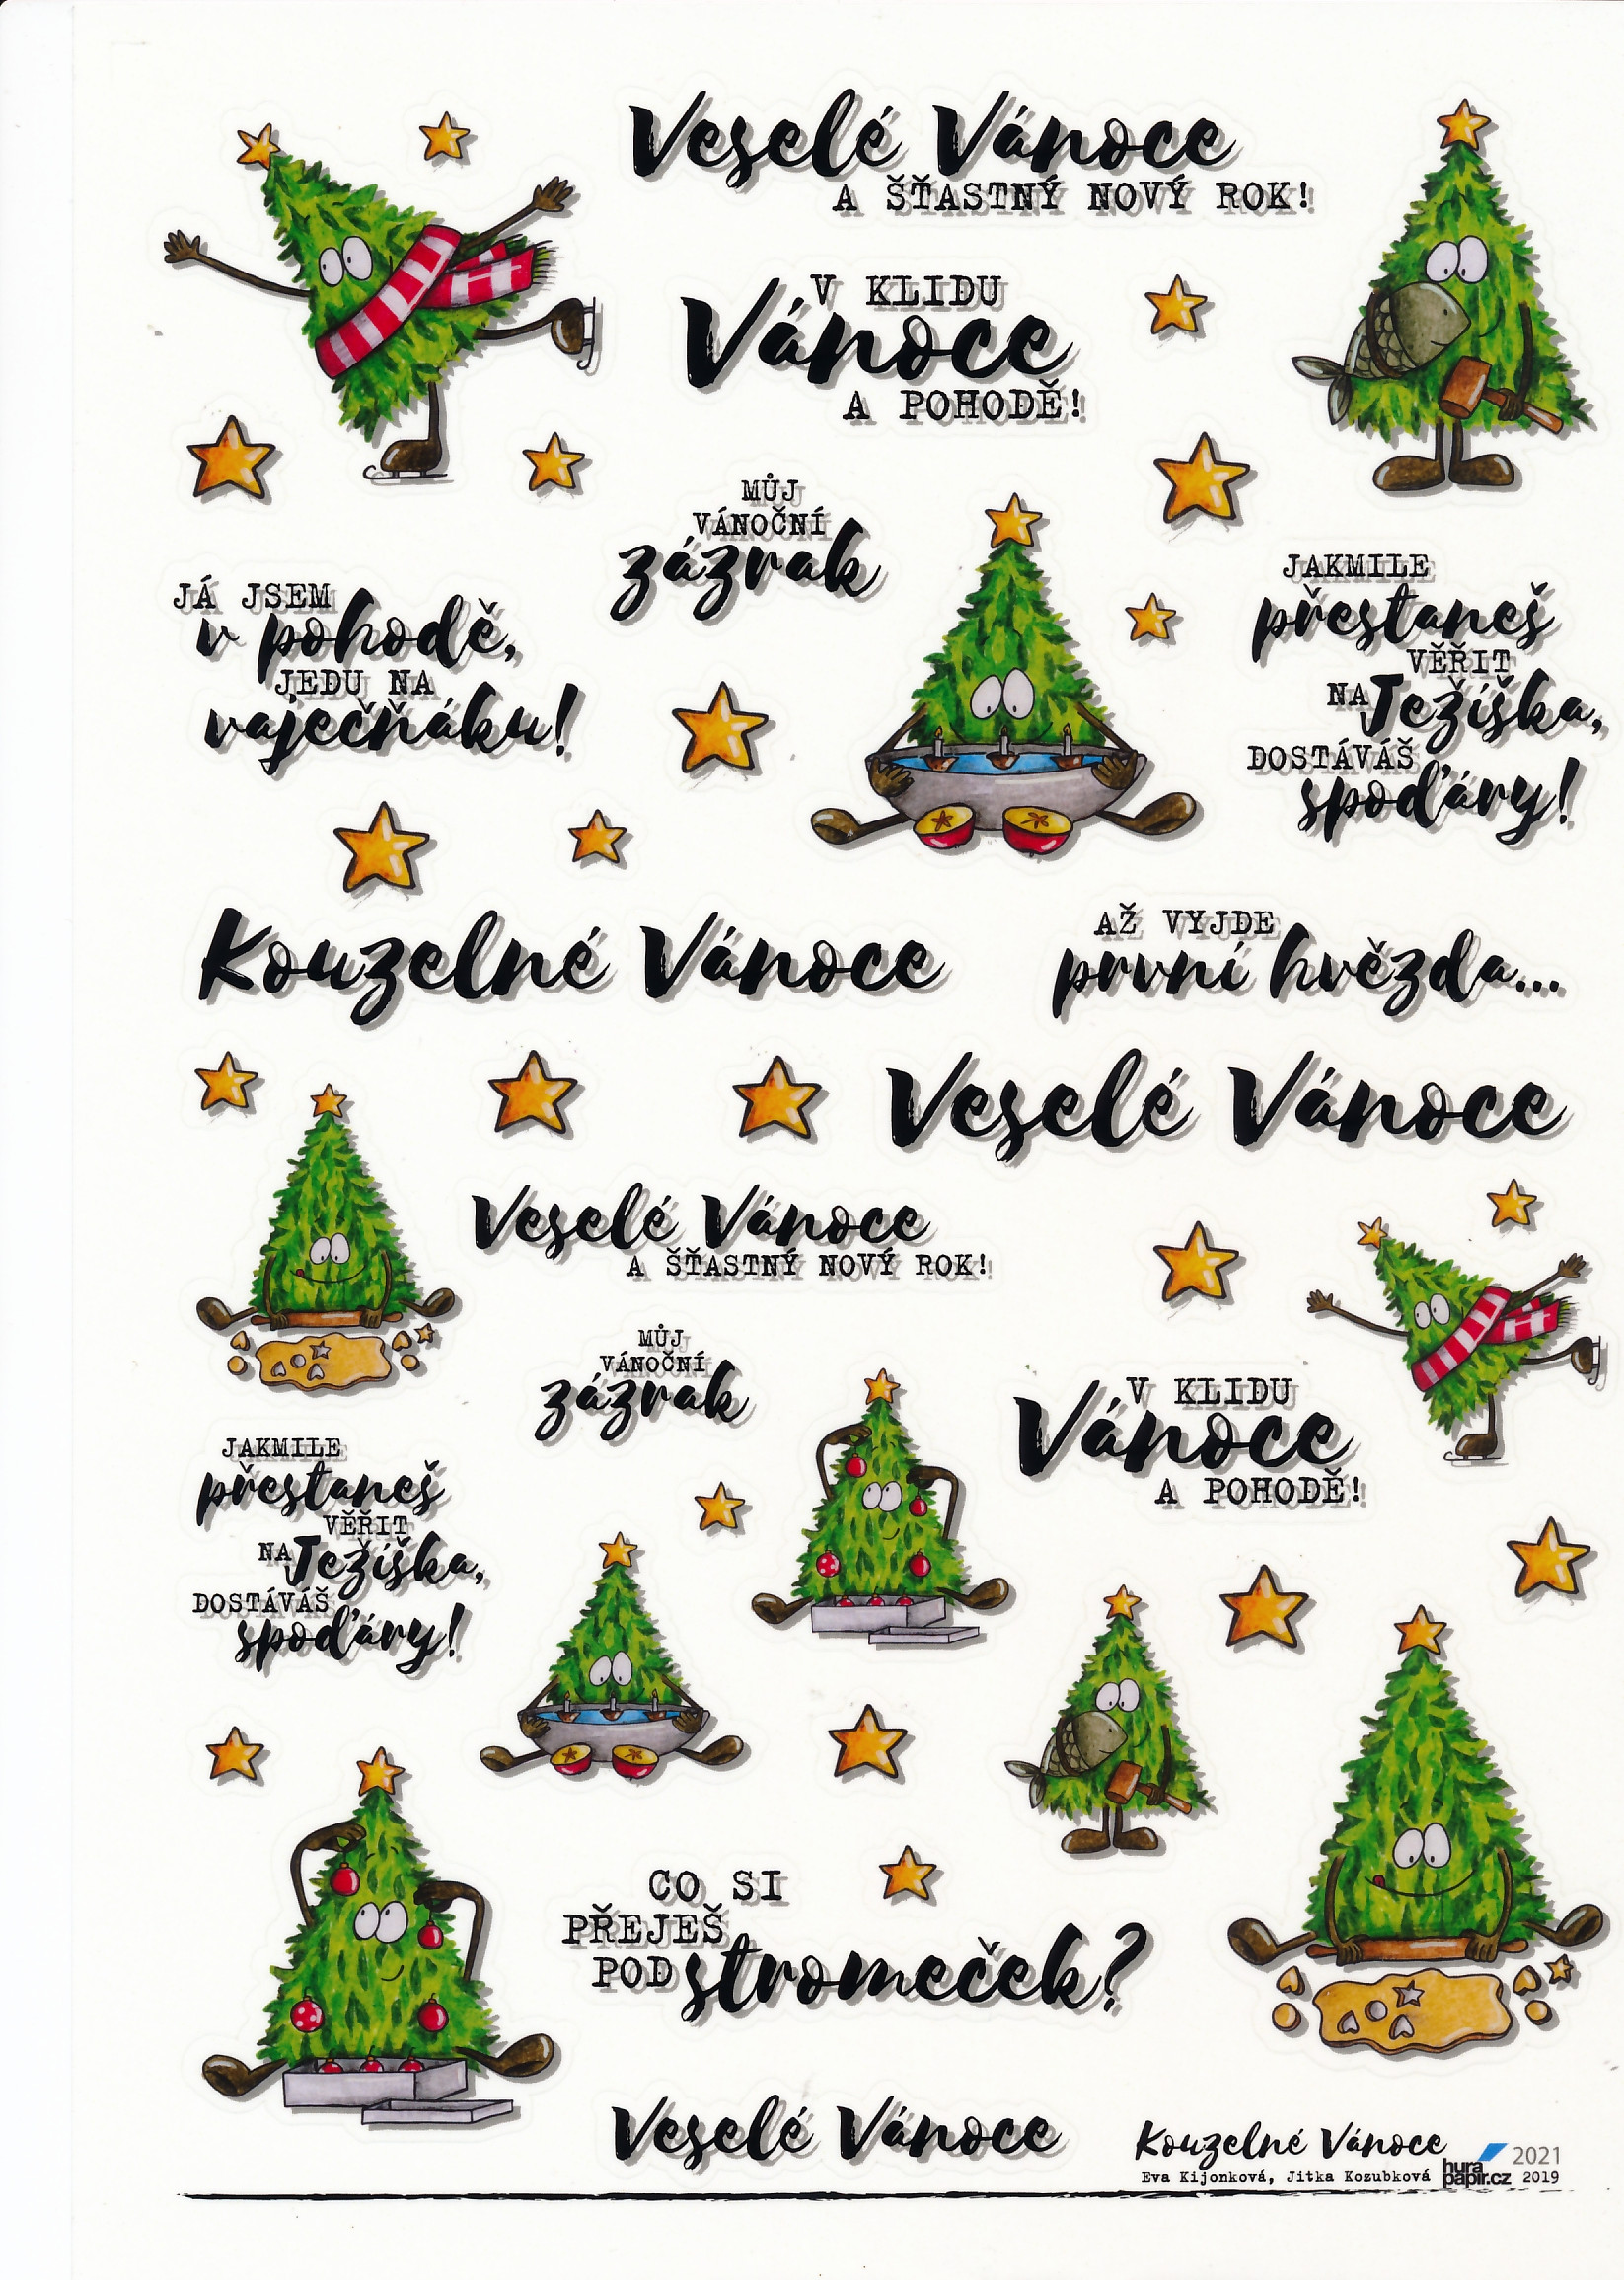 Veselé Vánoce
A ŠŤASTNÝ NOVÝ ROK!
V KLIDU
Vánoce
A POHODĚ!
MŮJ
VÁNOČNÍ
zázrak
JÁ JSEM
v pohodě,
JEDU NA
vaječňáku!
JAKMILE
přestaneš
VĚŘIT
NA Ježíška,
DOSTÁVÁŠ
spoďáry!
Kouzelné Vánoce
AŽ VYJDE
první hvězda...
Veselé Vánoce
Veselé Vánoce
A ŠŤASTNÝ NOVÝ ROK!
MŮJ
VÁNOČNÍ
zázrak
V KLIDU
Vánoce
A POHODĚ!
JAKMILE
přestaneš
VĚŘIT
NA Ježíška,
DOSTÁVÁŠ
spoďáry!
CO SI
PŘEJEŠ
POD stromeček?
Veselé Vánoce
Kouzelné Vánoce
Eva Kijonková, Jitka Kozubková
hura
papir.cz
2021
2019